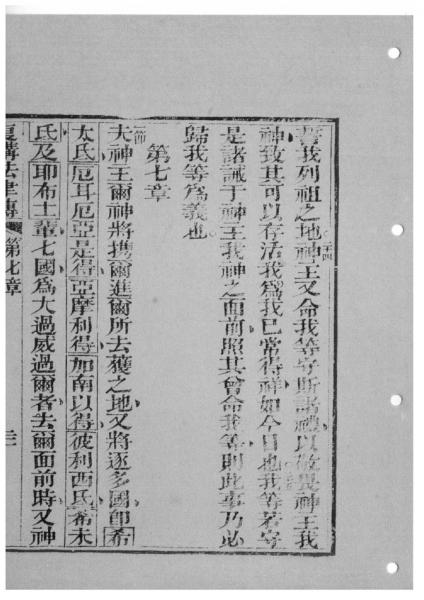 誓我列祖之地神王又命我等守斯諸禮以敬畏神王我
神致其可以存活我爲我已常得祥如今日也我等若守
是諸誡于神王我神之面前照其曾命我等則此事乃必
歸我等爲義也
第七章
夫神王爾神將携爾進爾所去獲之地又將逐多國卽希
太氏厄耳厄亞是得亞摩利得加南以得彼利西氏希未
氏及耶布士輩七國爲大過威過爾者去爾面前時又神
復講法律傳 第七章 三